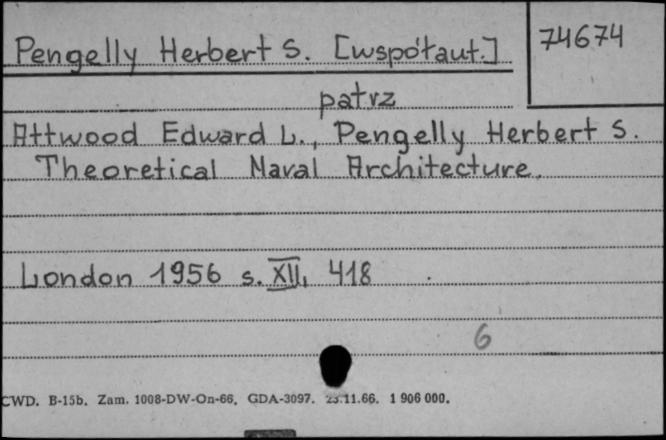 Pengelly Herbert S. [współaut.]
74674
patrz
Attwood Edward L., Pengelly Herbert S.
Theoretical Naval Architecture.
London 1956 s. XII, 418
6
CWD. B-15b. Zam. 1008-DW-On-66. GDA-3097. 23.11.66. 1 906 000.